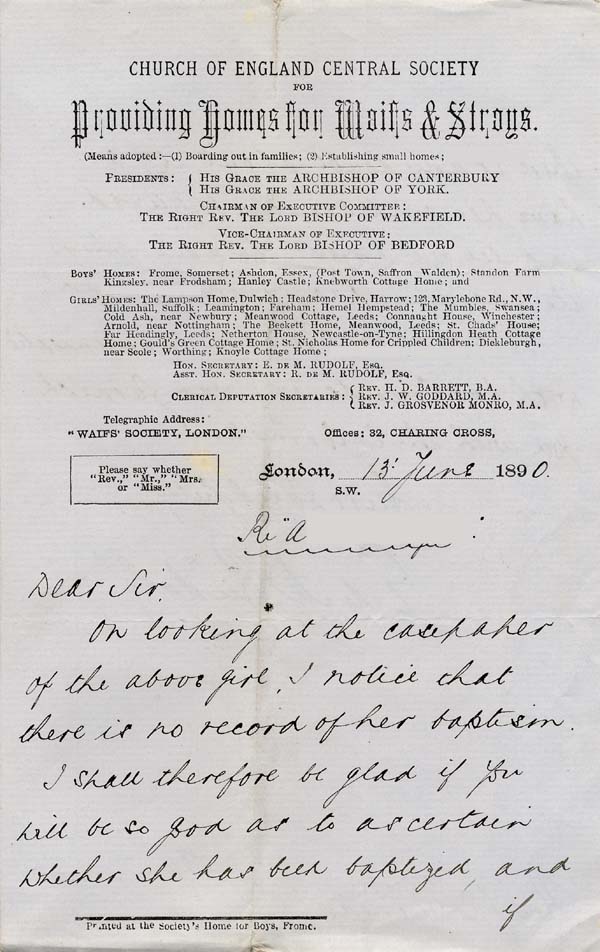 CHURCH OF ENGLAND CENTRAL SOCIETY
FOR
Providing Homes for Waifs & Strays.
(Means adopted :—(1) Boarding out in families; (2) Establishing small homes;
PRESIDENTS: { HIS GRACE THE ARCHBISHOP OF CANTERBURY
{ HIS GRACE THE ARCHBISHOP OF YORK.
CHAIRMAN OF EXECUTIVE COMMITTEE:
THE RIGHT REV. THE LORD BISHOP OF WAKEFIELD.
VICE-CHAIRMAN OF EXECUTIVE:
THE RIGHT REV. THE LORD BISHOP OF BEDFORD
BOYS' HOMES: Frome, Somerset; Ashdon, Essex, (Post Town, Saffron Walden); Standon Farm
Kingsley, near Frodsham; Hanley Castle; Knebworth Cottage Home; and
GIRLS' HOMES: The Lampson Home, Dulwich; Headstone Drive, Harrow; 123, Marylebone Rd., N.W.,
Mildenhall, Suffolk; Leamington; Fareham; Hemel Hempstead; The Mumbles, Swansea;
Cold Ash, near Newbury; Meanwood Cottage, Leeds; Connaught House, Winchester;
Arnold, near Nottingham; The Beckett Home, Meanwood, Leeds; St. Chads' House;
Far Headingly, Leeds; Netherton House, Newcastle-on-Tyne; Hillingdon Heath Cottage
Home; Gould's Green Cottage Home; St. Nicholas Home for Crippled Children; Dickleburgh,
near Scole; Worthing; Knoyle Cottage Home;
HON. SECRETARY: E. DE M. RUDOLF, ESQ.
ASST. HON. SECRETARY: R. DE M. RUDOLF, ESQ.
CLERICAL DEPUTATION SECRETARIES: { REV. H. D. BARRETT, B.A.
{ REV. J. W. GODDARD, M.A.
{ REV. J. GROSVENOR MONRO, M.A.
Telegraphic Address:
"WAIFS' SOCIETY, LONDON." Offices: 32, CHARING CROSS,
Please say whether
"Rev.," "Mr.," "Mrs.
or "Miss."
London, 13 June 1890.
S.W.
Re "A :
Dear Sir,
On looking at the casepaper
of the above girl, I notice that
there is no record of her baptism.
I shall therefore be glad if you
will be so good as to ascertain
whether she has been baptized, and
if
Printed at the Society's Home for Boys, Frome.